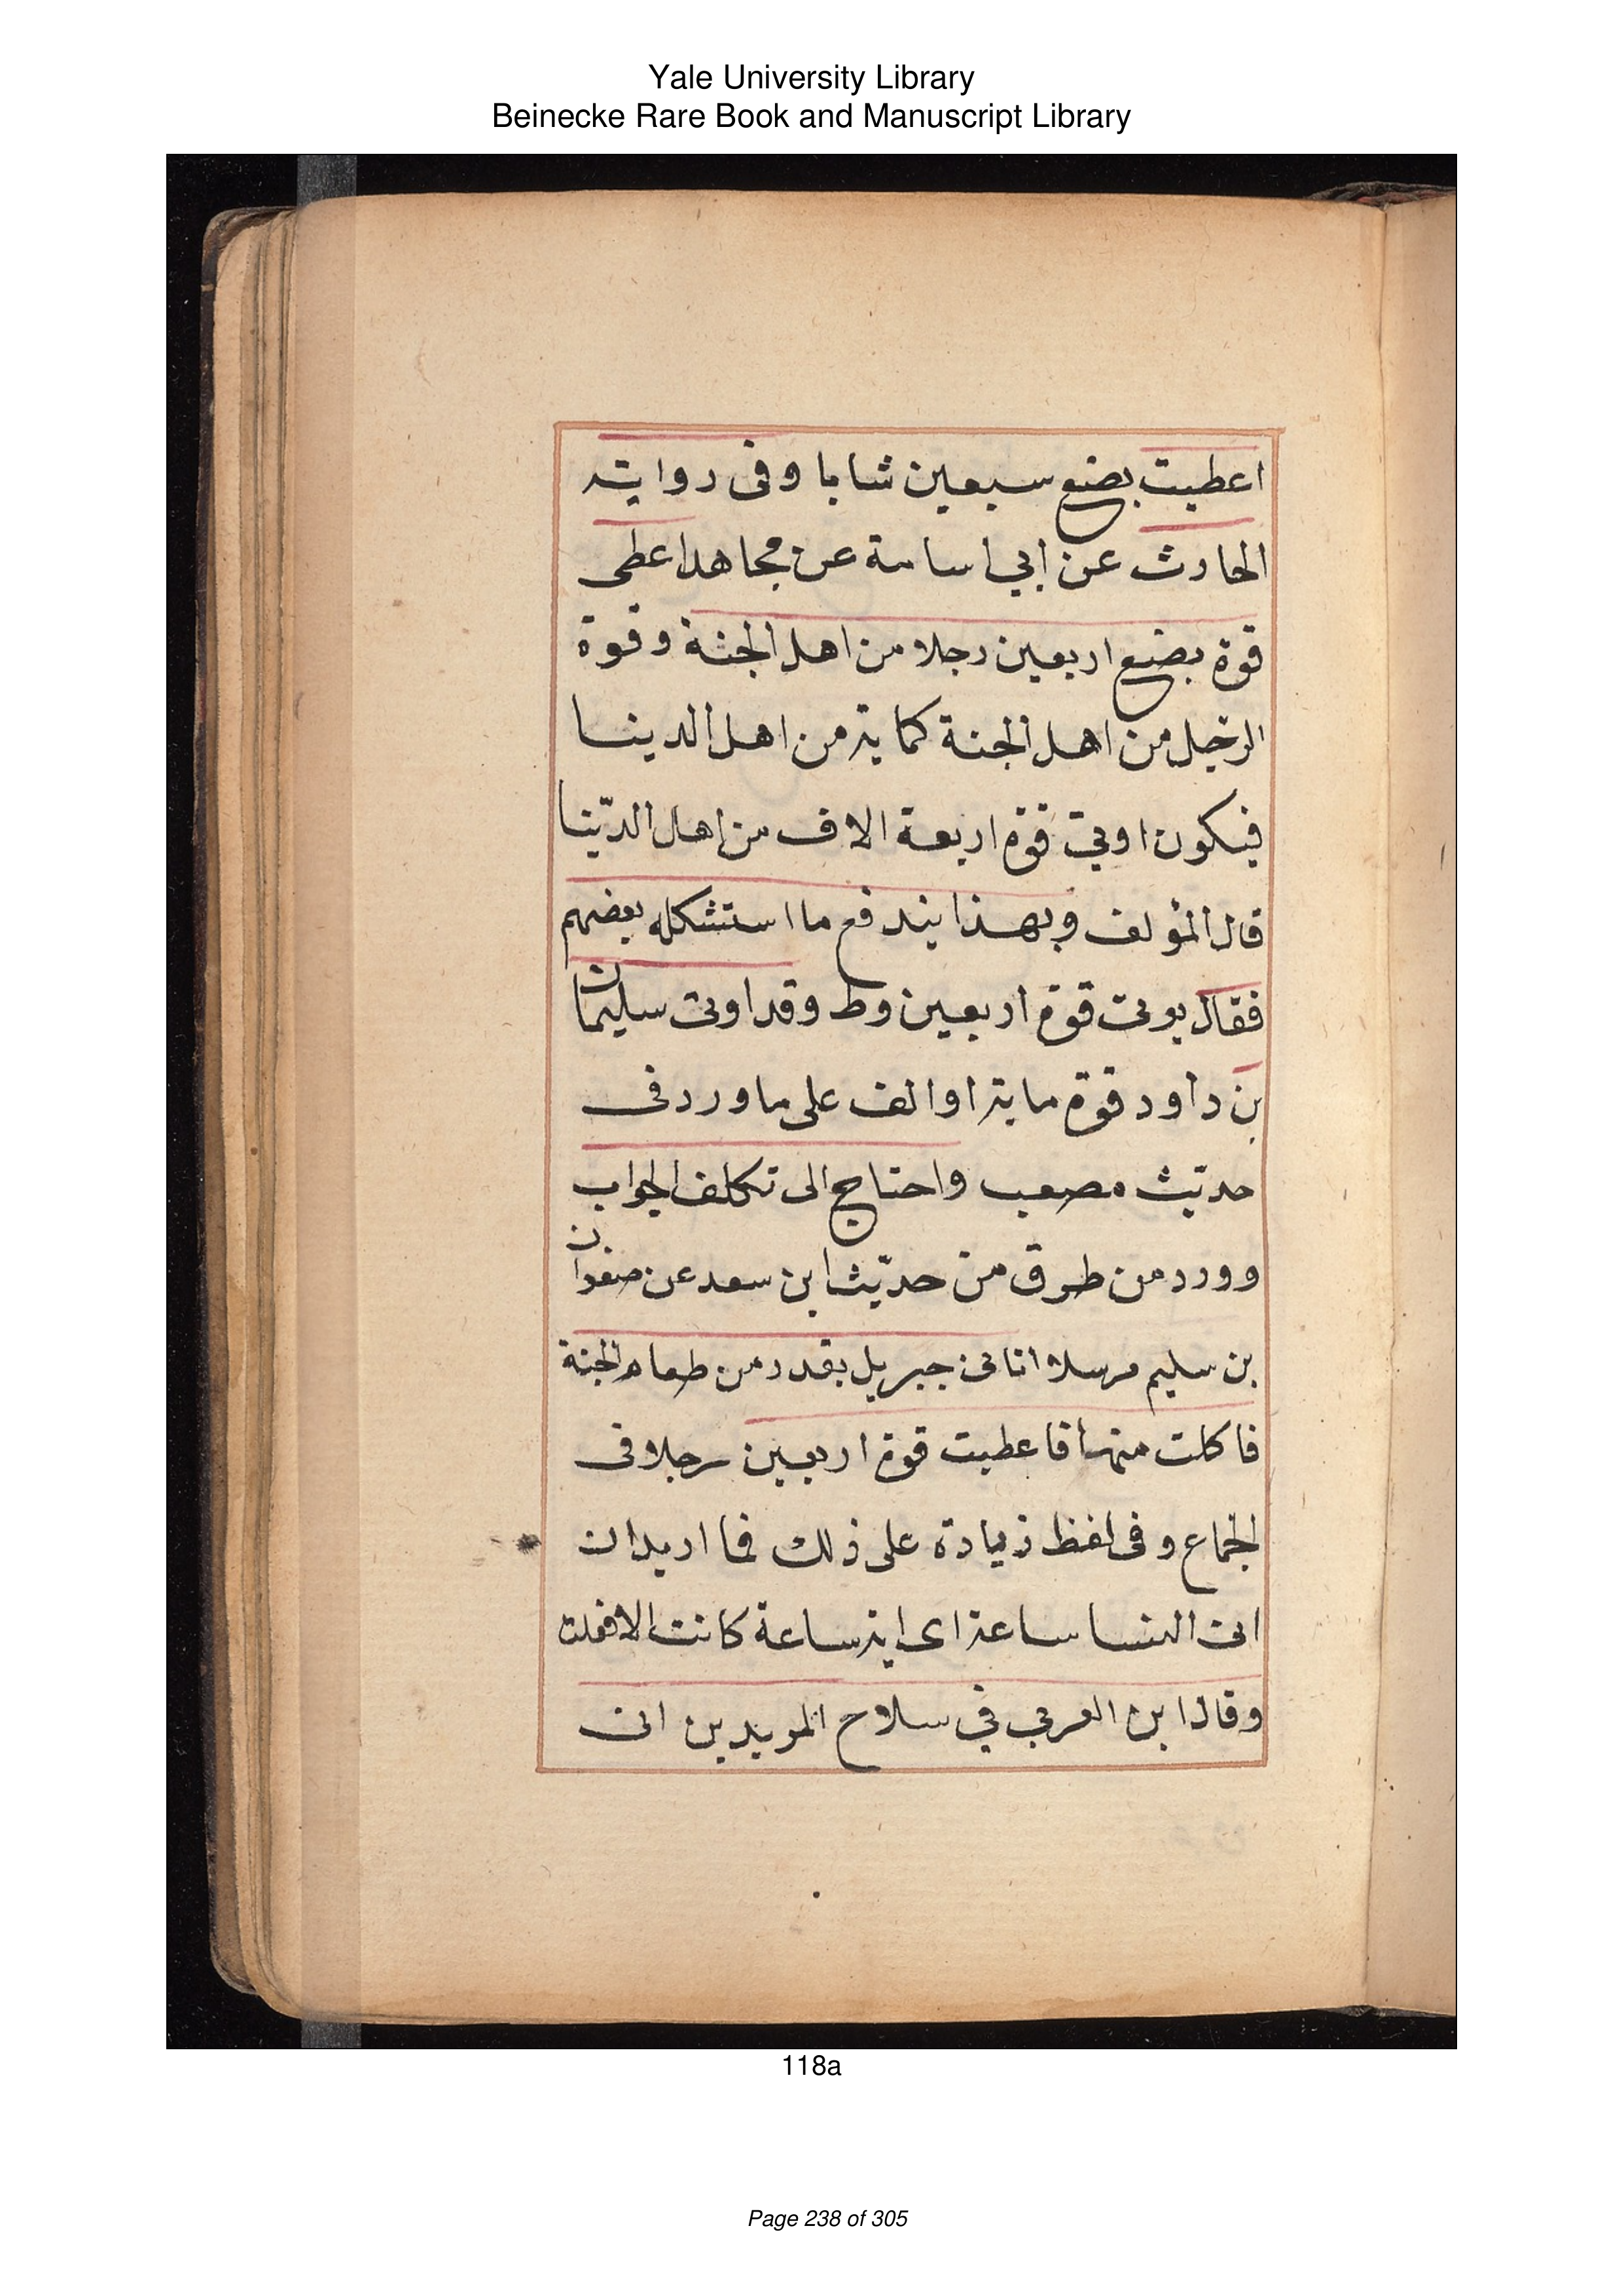 Yale University Library
Beinecke Rare Book and Manuscript Library
اعطيت بضع سبعين شابا وفى رواية
الحارث عن ابي اسامة عن مجاهد اعطى
قوة بضع اربعين رجلا من اهل الجنة وقوة
الرجل من اهل الجنة كماية من اهل الدينا
فيكون اوتي قوة اربعة الاف من اهل الدّينا
قال المؤلف وبهذا يندفع ما استشكله بعضهم
فقال يوتى قوة اربعين وط وقد اوتى سليمان
بن داود قوة ماية او الف على ما ورد فى
حديث مصعب واحتاج الى تكلف الجواب
وورد من طرق من حديث ابن سعد عن صفوان
بن سليم مرسلا اتانى جبريل بقدر من طعام الجنة
فاكلت منها فاعطيت قوة اربعين رجلا فى
الجماع وفى لفظ زيادة على ذلك فما اريد ان
اتى النسا ساعة اى اية ساعة كانت الا فعلت
وقال ابن العربي في سلاح المويدين اتى
118a
Page 238 of 305